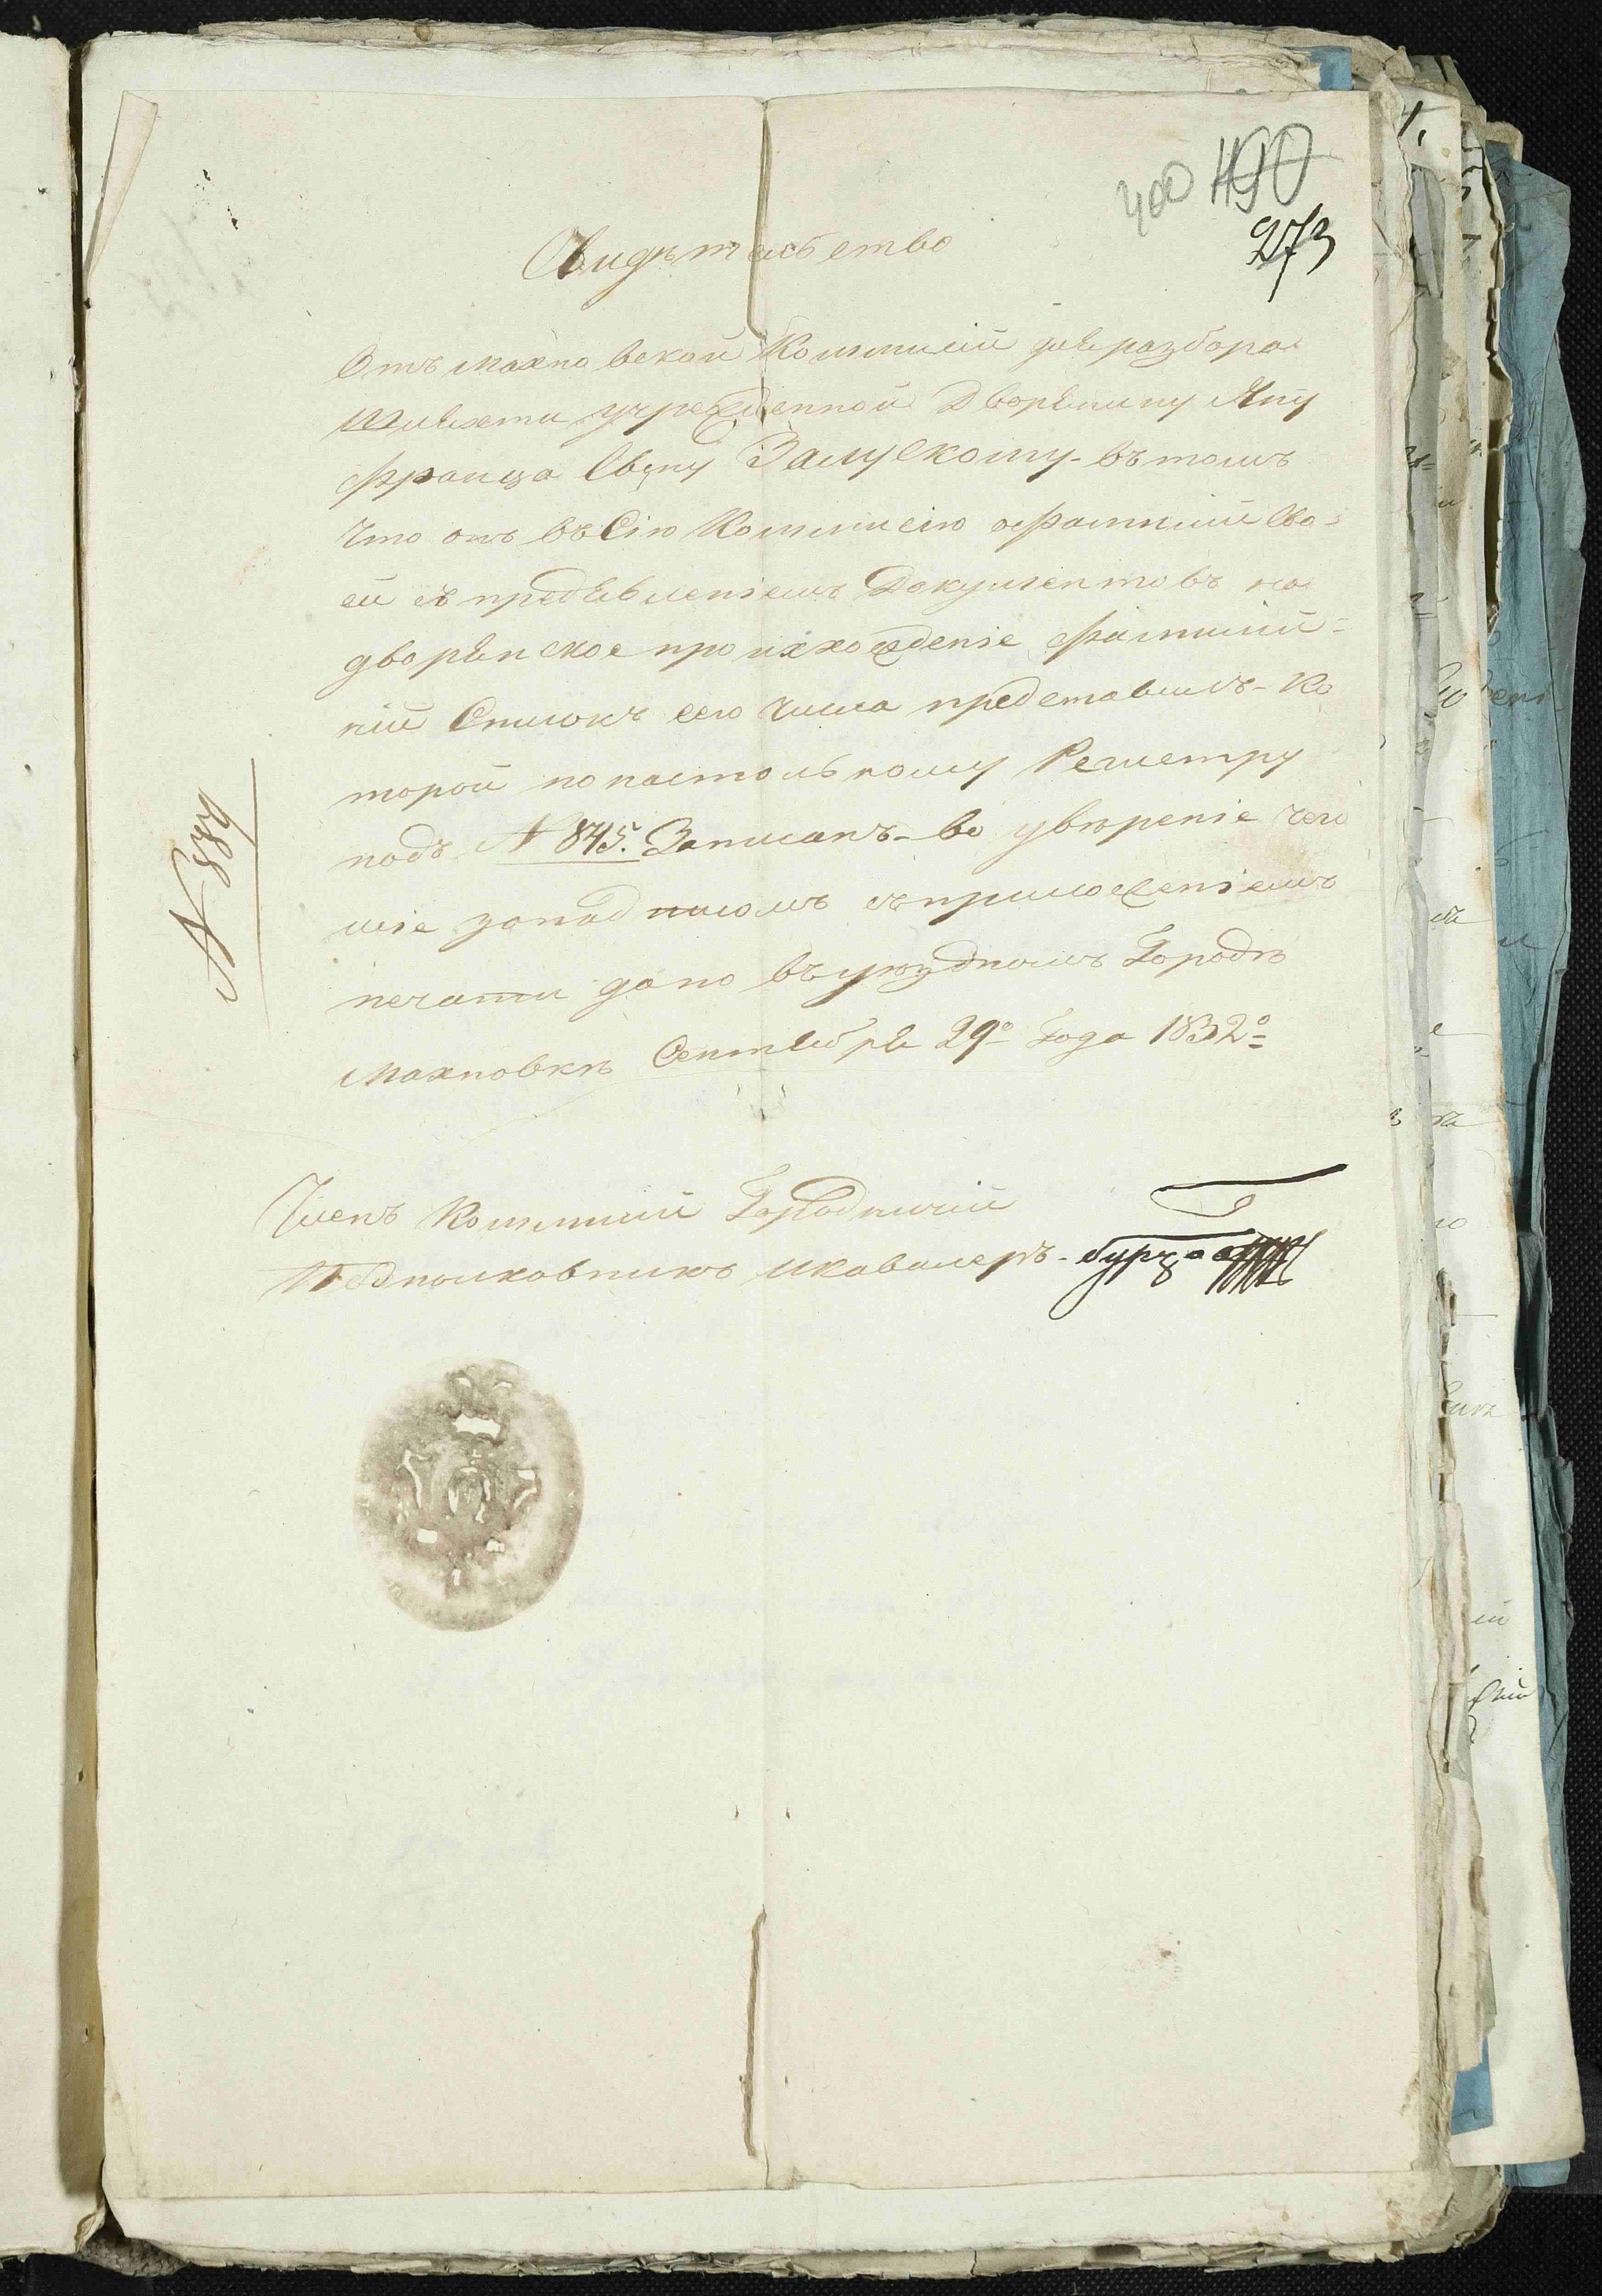 400 490
273
Свидѣтельство
Отъ Махновской Коммисіи для разбора
Шляхти учрежденной Дворянину Яну
Франца Сыну Залускому - въ томъ
что онъ въ Сію Коммисію о фамиліи сво-
ей съ предъявленіемъ Документовъ на
дворянское произхожденіе фамилій=
ній Списокъ сего числа представилъ - Ко
торой по настольному Регистру
подъ N 845. Записанъ - во увѣреніе чего
сіе за подписомъ съ приложеніемъ
печати дано въ уѣздномъ Городѣ
Махновкѣ Сентября 29º Года 1832º=
N 889
Членъ Коммисіи Городничій
Подполковникъ и кавалеръ -